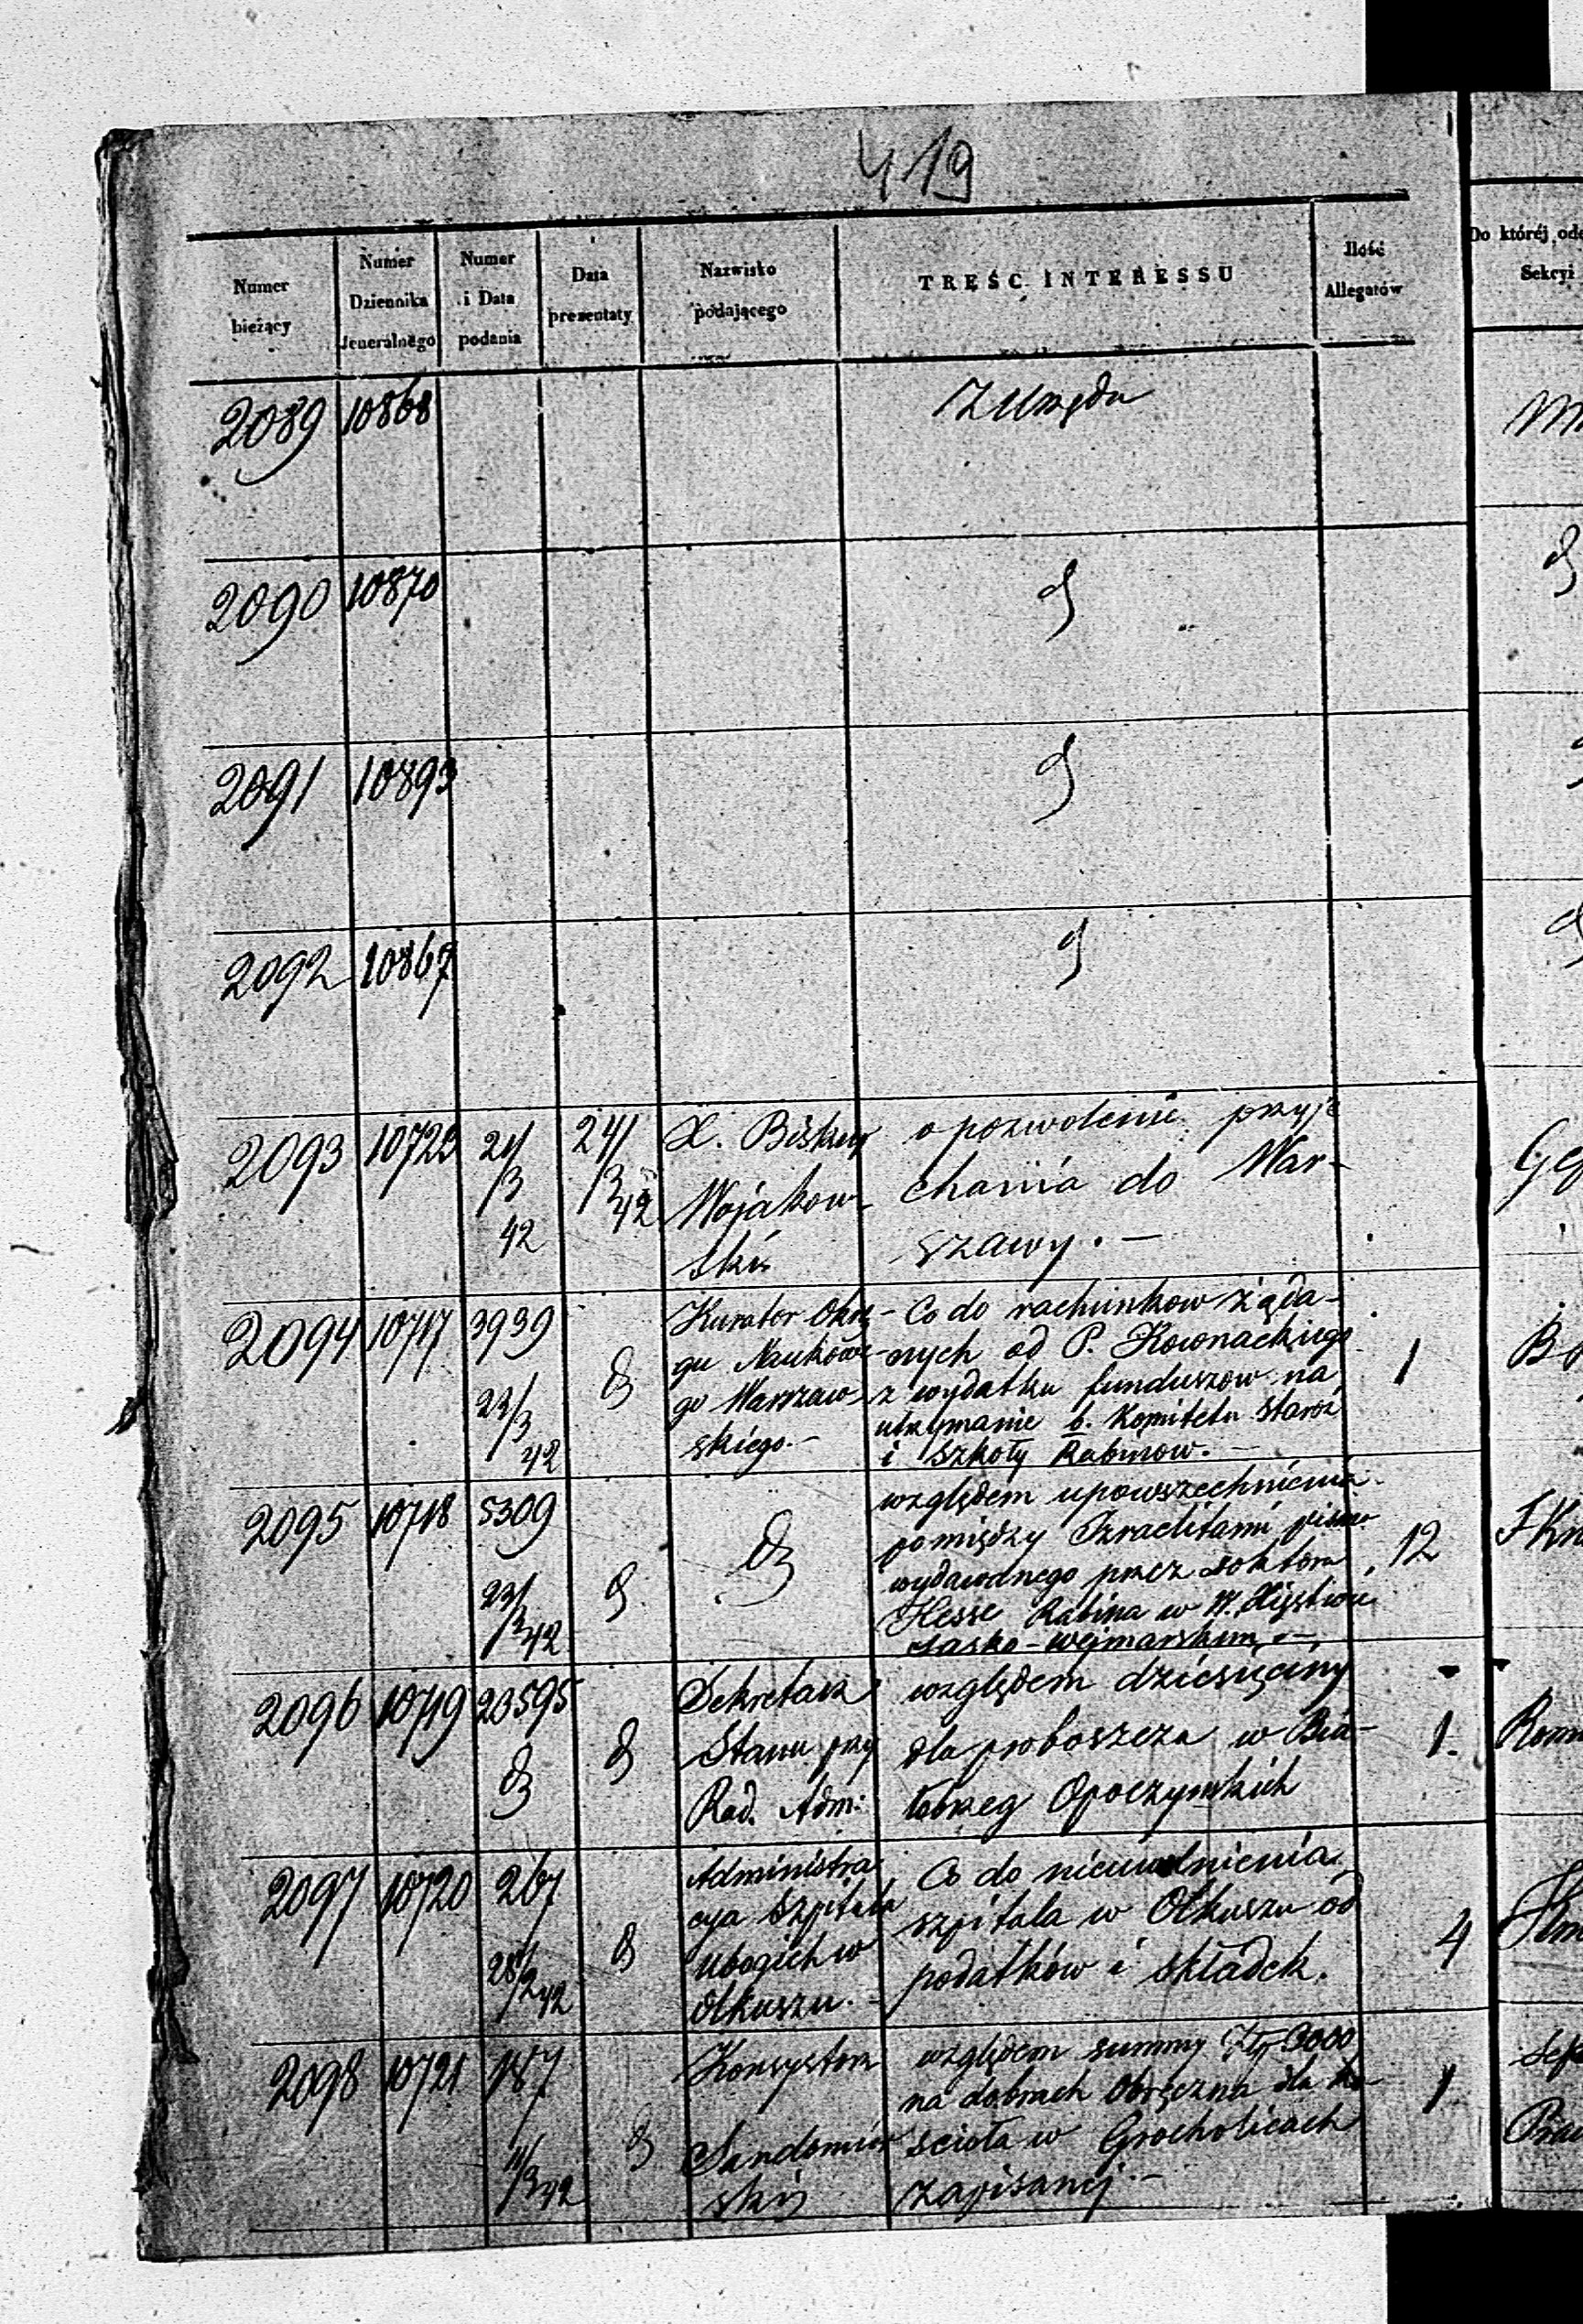 419
Numer bieżący | Numer Dziennika Jeneralnego | Numer i Data podania | Data prezentaty | Nazwisko podającego | TREŚC INTERESSU | Ilość Allegatów | Do któréj Sekcyi
2089 10868 Z Urzędu
2090 10870 d
2091 10893 d
2092 10867 d
2093 10723 21/3 42 24/3 42
X. Biskup
Wojakow-
ski
o pozwolenie przyje
chania do War-
szawy. —
Ge
2094 10717 3939 23/3 42 d
Kurator Okrę-
gu Naukowe-
go Warszaw-
skiego.—
Co do rachunkow żąda-
nych od P. Kownackiego
z wydatku funduszow na
utrzymanie b. Komitetu Staroz
i Szkoły Rabinow. —
1
2095 10718 5309 23/3 42 d
d
względem upowszechnienia
pomiędzy Izraelitami pisma
wydawanego przez Doktora
Hesse Rabina w W. Xięstwie
Sasko-Wejmarskim. —
12
2096 10719 23595 d d
Sekretarz
Stanu przy
Rad. Adm:
względem dziesięciny
dla proboszcza w Bia-
łobrzeg Opoczynskich
1.
2097 10720 267 28/2 42 d
Administra
cya Szpitala
ubogich w
Olkuszu. —
Co do nieuwolnienia
szpitala w Olkuszu od
podatków i składek.
4
2098 10721 187 11/3 42 d
Konsystorz
Sandomir
ski
względem summy Złp 3000
na dobrach Obręczna dla Ko-
ścioła w Grocholicach
zapisanej. —
1